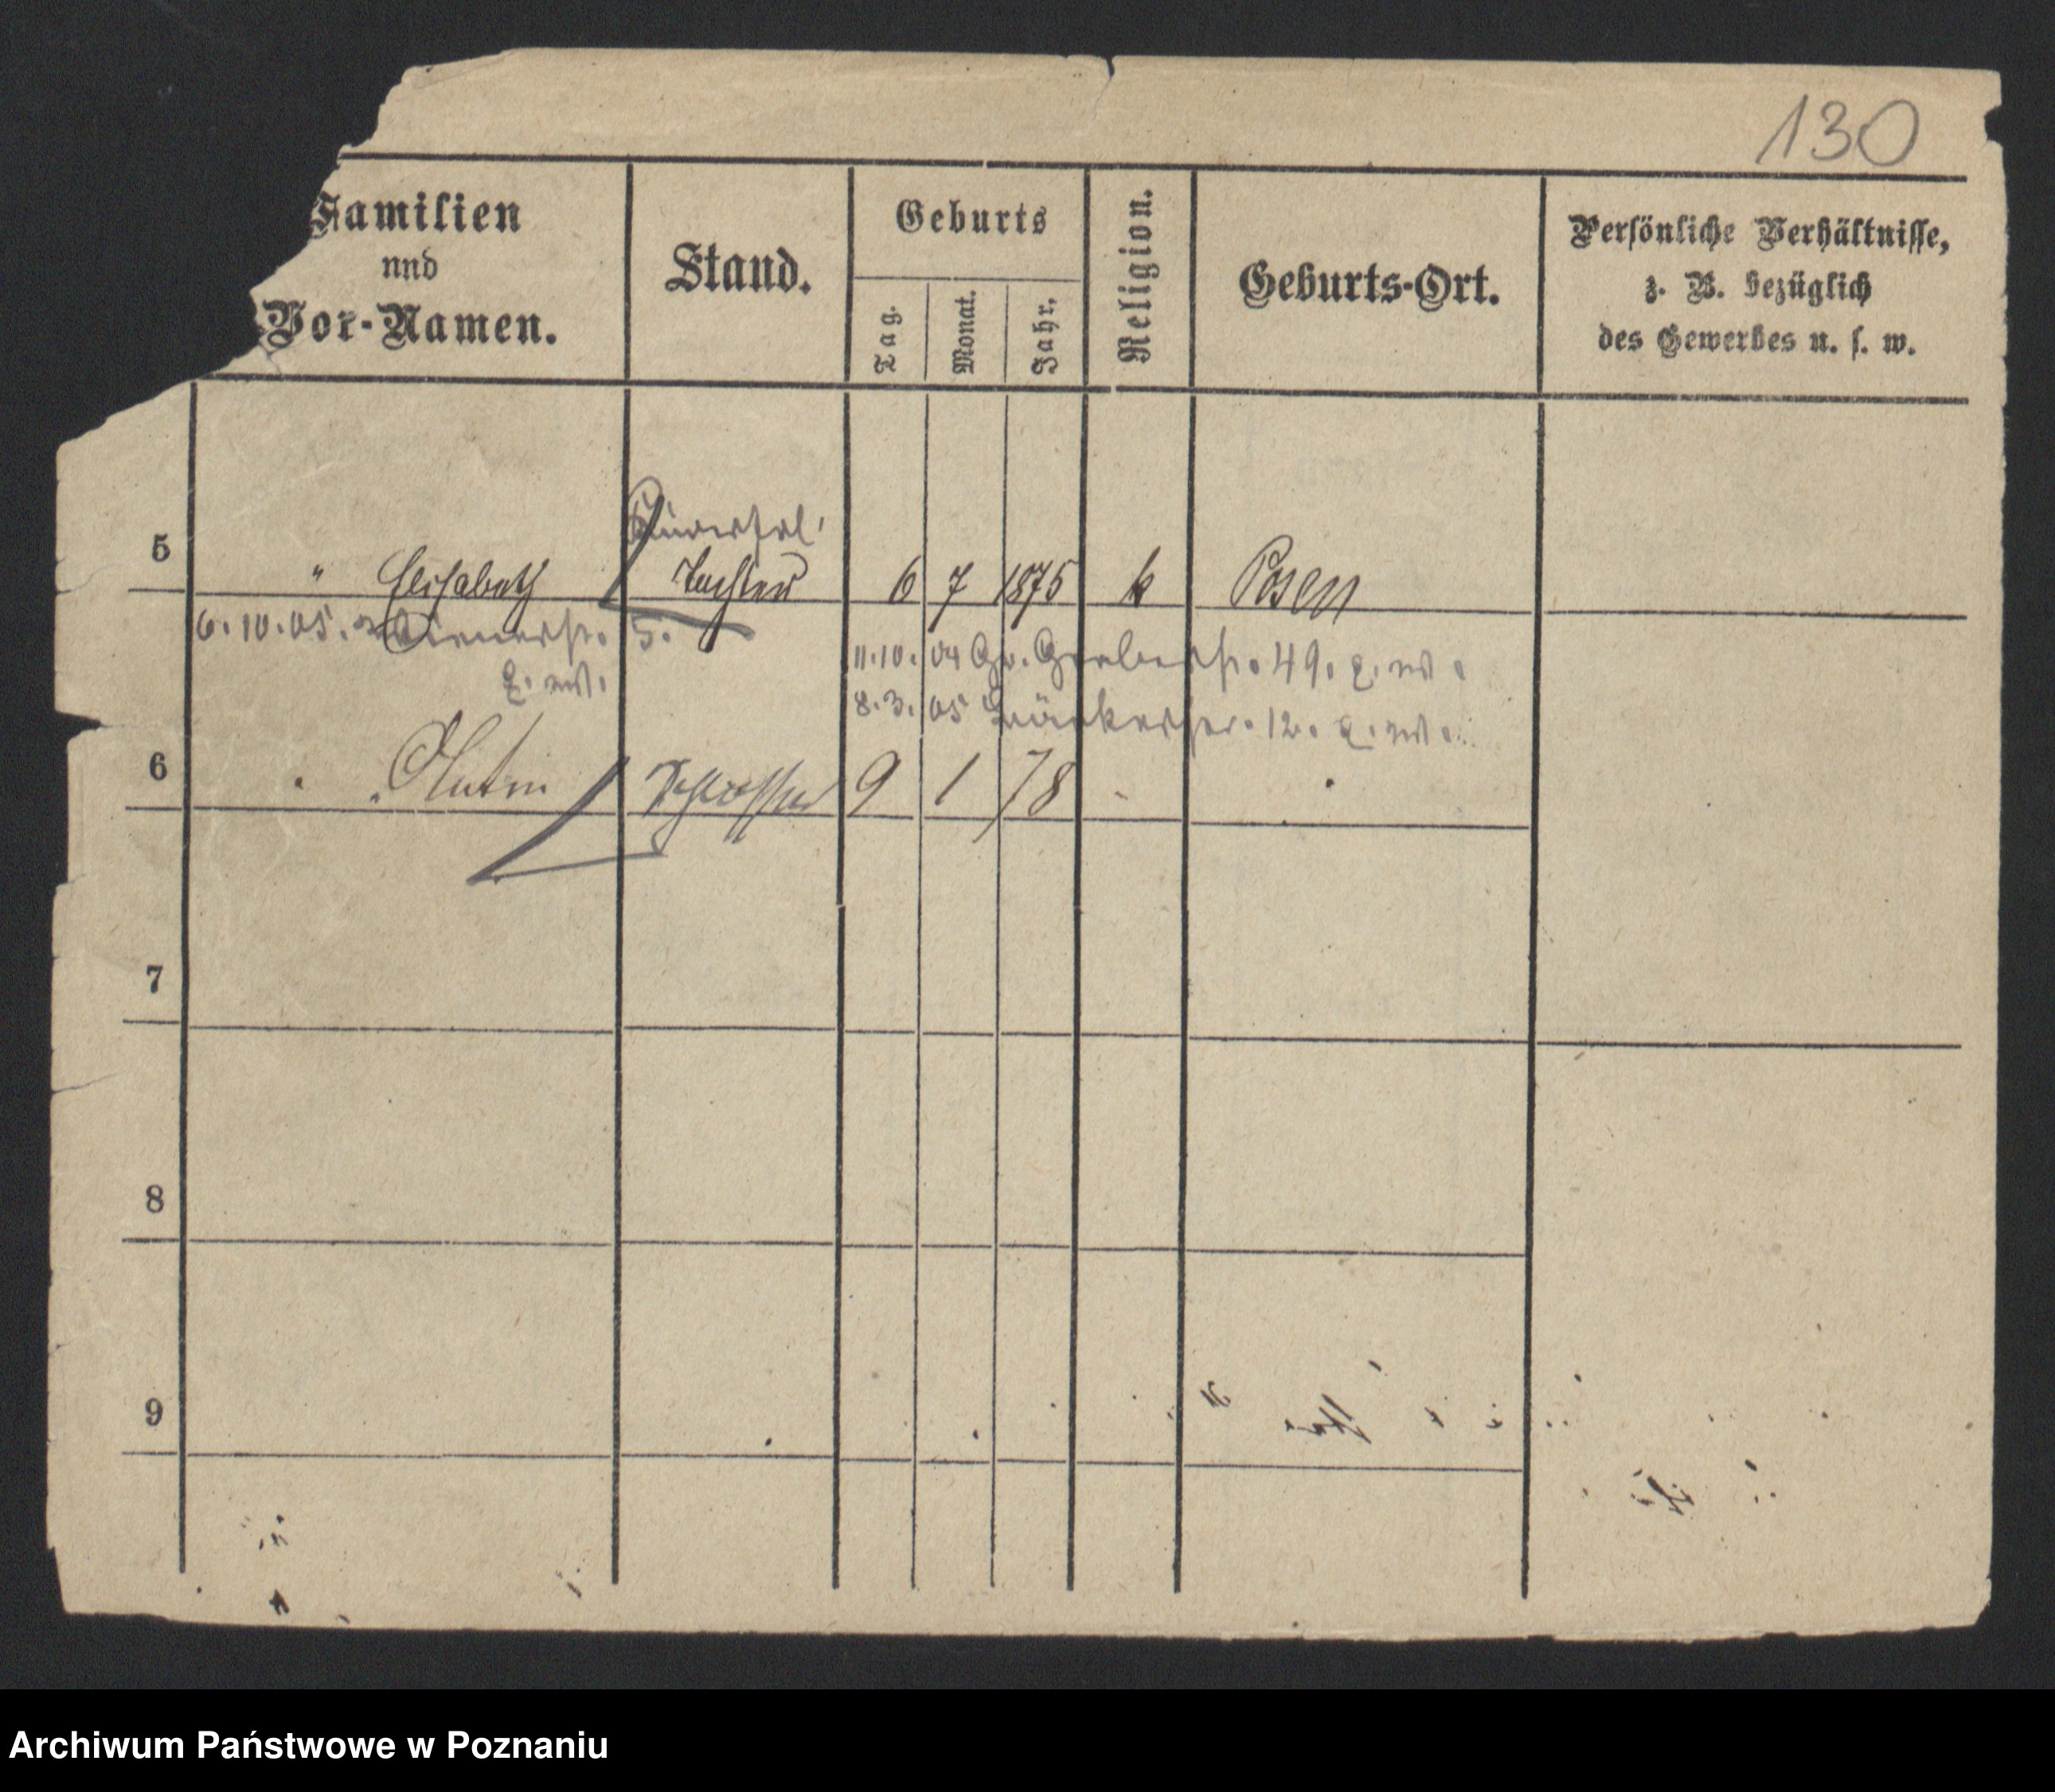 130
Familien
und
Vor-Namen.
Stand.
Geburts
Tag.
Monat.
Jahr.
Religion.
Geburts-Ort.
Persönliche Verhältnisse,
z. B. bezüglich
des Gewerbes u. s. w.
5
" Elisabeth Tochter 6 7 1875 k Posen
6.10.05. 5.
11.10.04 Gr. Gerberstr. 49. z. w.
8.3.05 12. z. w.
z. w.
6
Schlosser 9 1 78
7
8
9
Archiwum Państwowe w Poznaniu